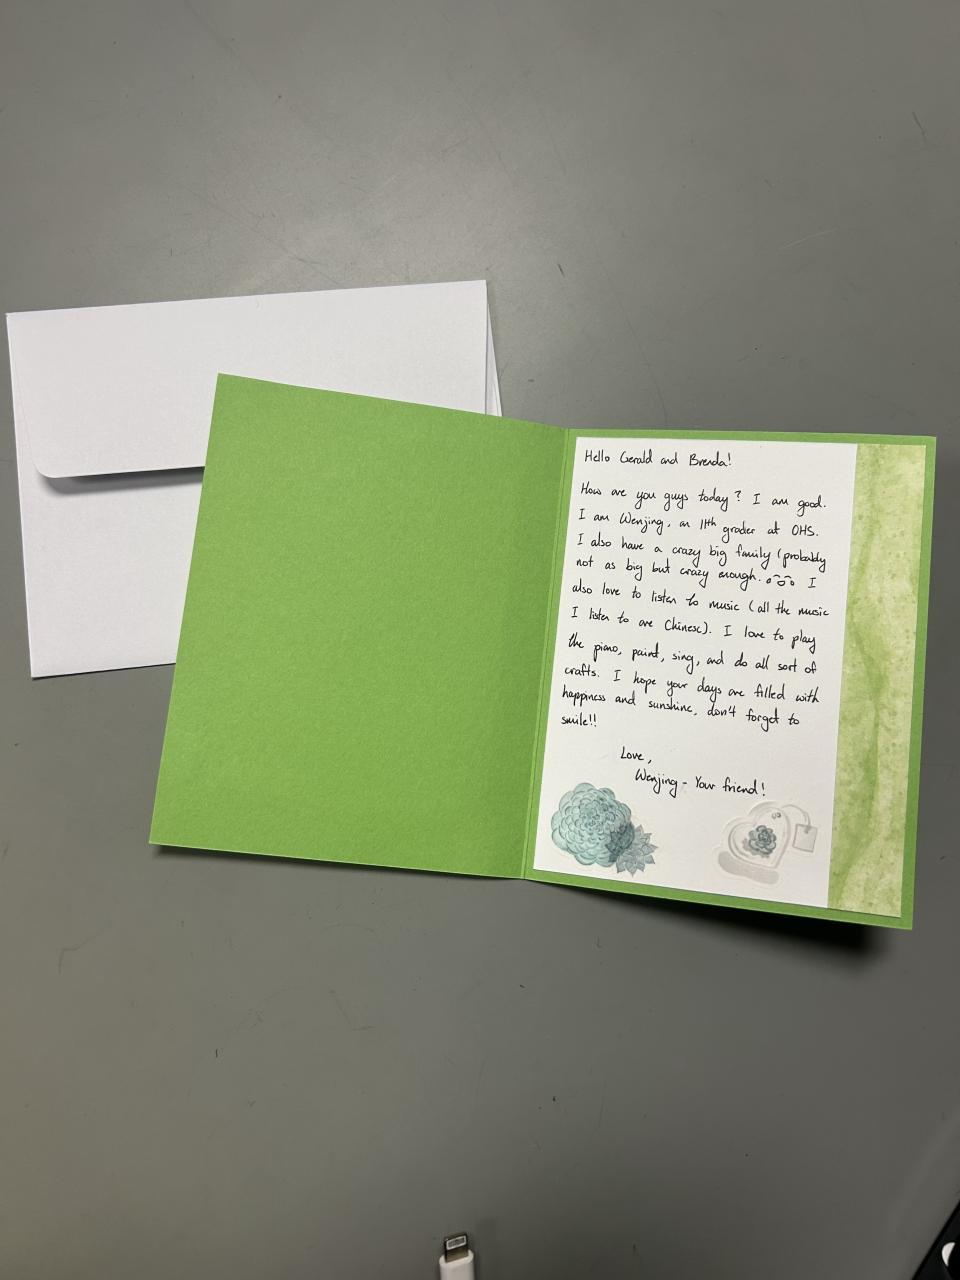 Hello Gerald and Brenda!
How are you guys today? I am good.
I am Wenjing, an 11th grader at OHS.
I also have a crazy big family (probably
not as big but crazy enough. I
also love to listen to music (all the music
I listen to are Chinese). I love to play
the piano, paint, sing, and do all sort of
crafts. I hope your days are filled with
happiness and sunshine, don't forget to
smile!!
Love,
Wenjing - Your friend!